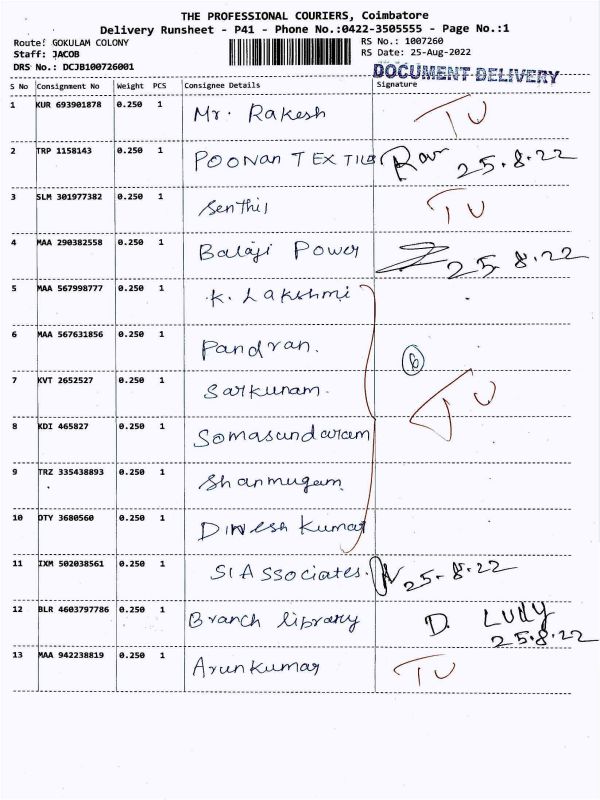 THE PROFESSIONAL COURIERS, Coimbatore
Delivery Runsheet - P41 - Phone No.:0422-3505555 - Page No.:1
Route: GOKULAM COLONY RS No.: 1007260
Staff: JACOB RS Date: 25-Aug-2022
DRS No.: DCJB100726001 DOCUMENT DELIVERY
S No Consignment No Weight PCS Consignee Details Signature
1 KUR 693901878 0.250 1 Mr. Rakesh TU
2 TRP 1158143 0.250 1 POONAN TEXTILS 25.8.22
3 SLM 301977382 0.250 1 Senthil TU
4 MAA 290382558 0.250 1 Balaji Power 25.8.22
5 MAA 567998777 0.250 1 K. Lakshmi
6 MAA 567631856 0.250 1 Pandran. 6
7 KVT 2652527 0.250 1 Sarkunam. TU
8 KDI 465827 0.250 1 Somasundaram
9 TRZ 335438893 0.250 1 Shanmugam
10 OTY 3680560 0.250 1 Dinesh Kumar
11 IXM 502038561 0.250 1 SI Associates. 25-8-22
12 BLR 4603797786 0.250 1 Branch library D.
25.8.22
13 MAA 942238819 0.250 1 Arunkumar TU